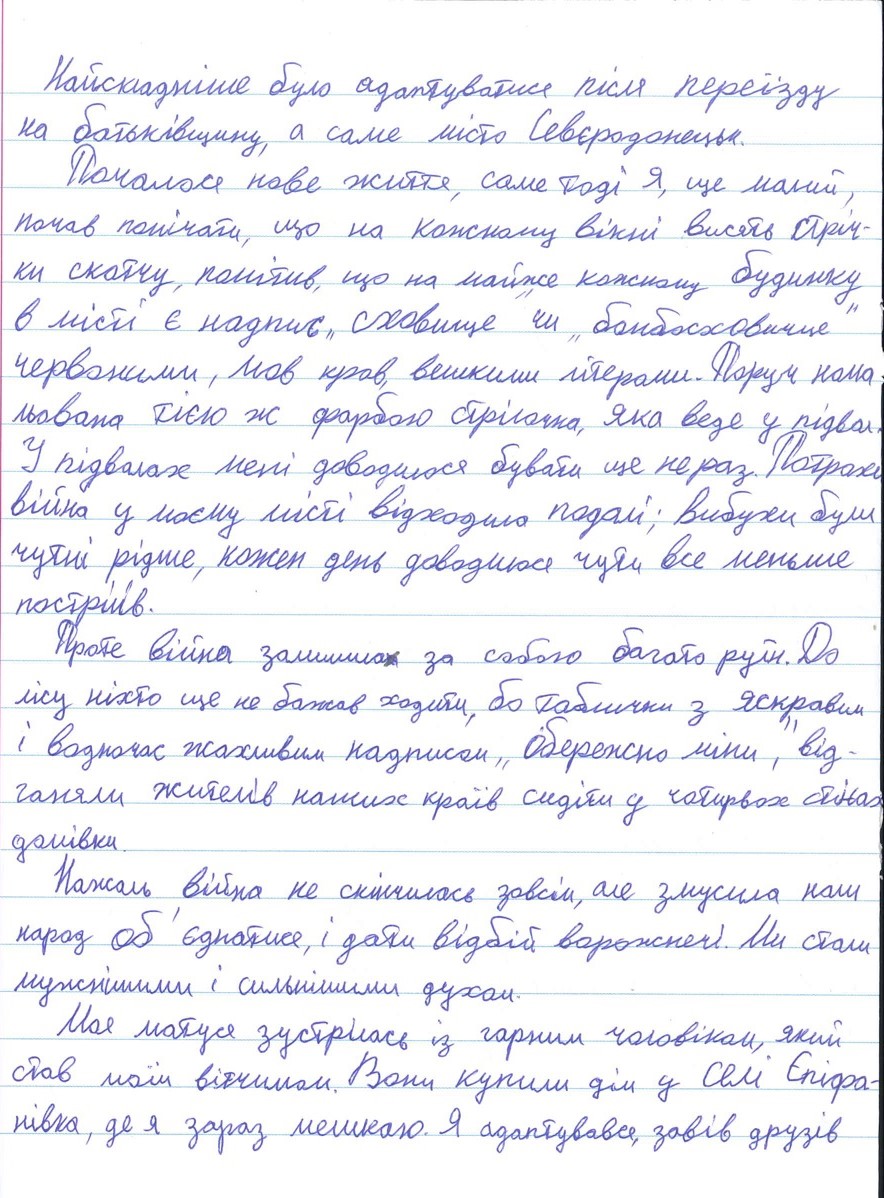 Найскладніше було адаптуватися після переїзду
на батьківщину, а саме місто Сєвєродонецьк.
Почалося нове життя, саме тоді я, ще малий,
почав помічати, що на кожному вікні висять стріч-
ки скотчу, помітив, що на майже кожному будинку
в місті є надпис „сховище" чи „бомбосховище"
червоними, мов кров, великими літерами. Поруч нама-
льована тією ж фарбою стрілочка, яка веде у підвал.
У підвалах мені доводилося бувати ще не раз. Потрохи
війна у моєму місті відходила подалі; вибухи були
чутні рідше, кожен день доводилося чути все меньше
пострілів.
Проте війна залишила за собою багато руїн. До
лісу ніхто ще не бажав ходити, бо таблички з яскравим
і водночас жахливим надписом „Обережно міни", від-
ганяли жителів наших країв сидіти у чотирьох стінах
домівки.
Нажаль війна не скінчилась зовсім, але змусила наш
народ об'єднатися, і дати відбій ворожнечі. Ми стали
мужнішими і сильнішими духом.
Моя матуся зустрілась із гарним чоловіком, який
став моїм вітчимом. Вони купили дім у селі Єпіфа-
нівка, де я зараз мешкаю. Я адаптувався, завів друзів